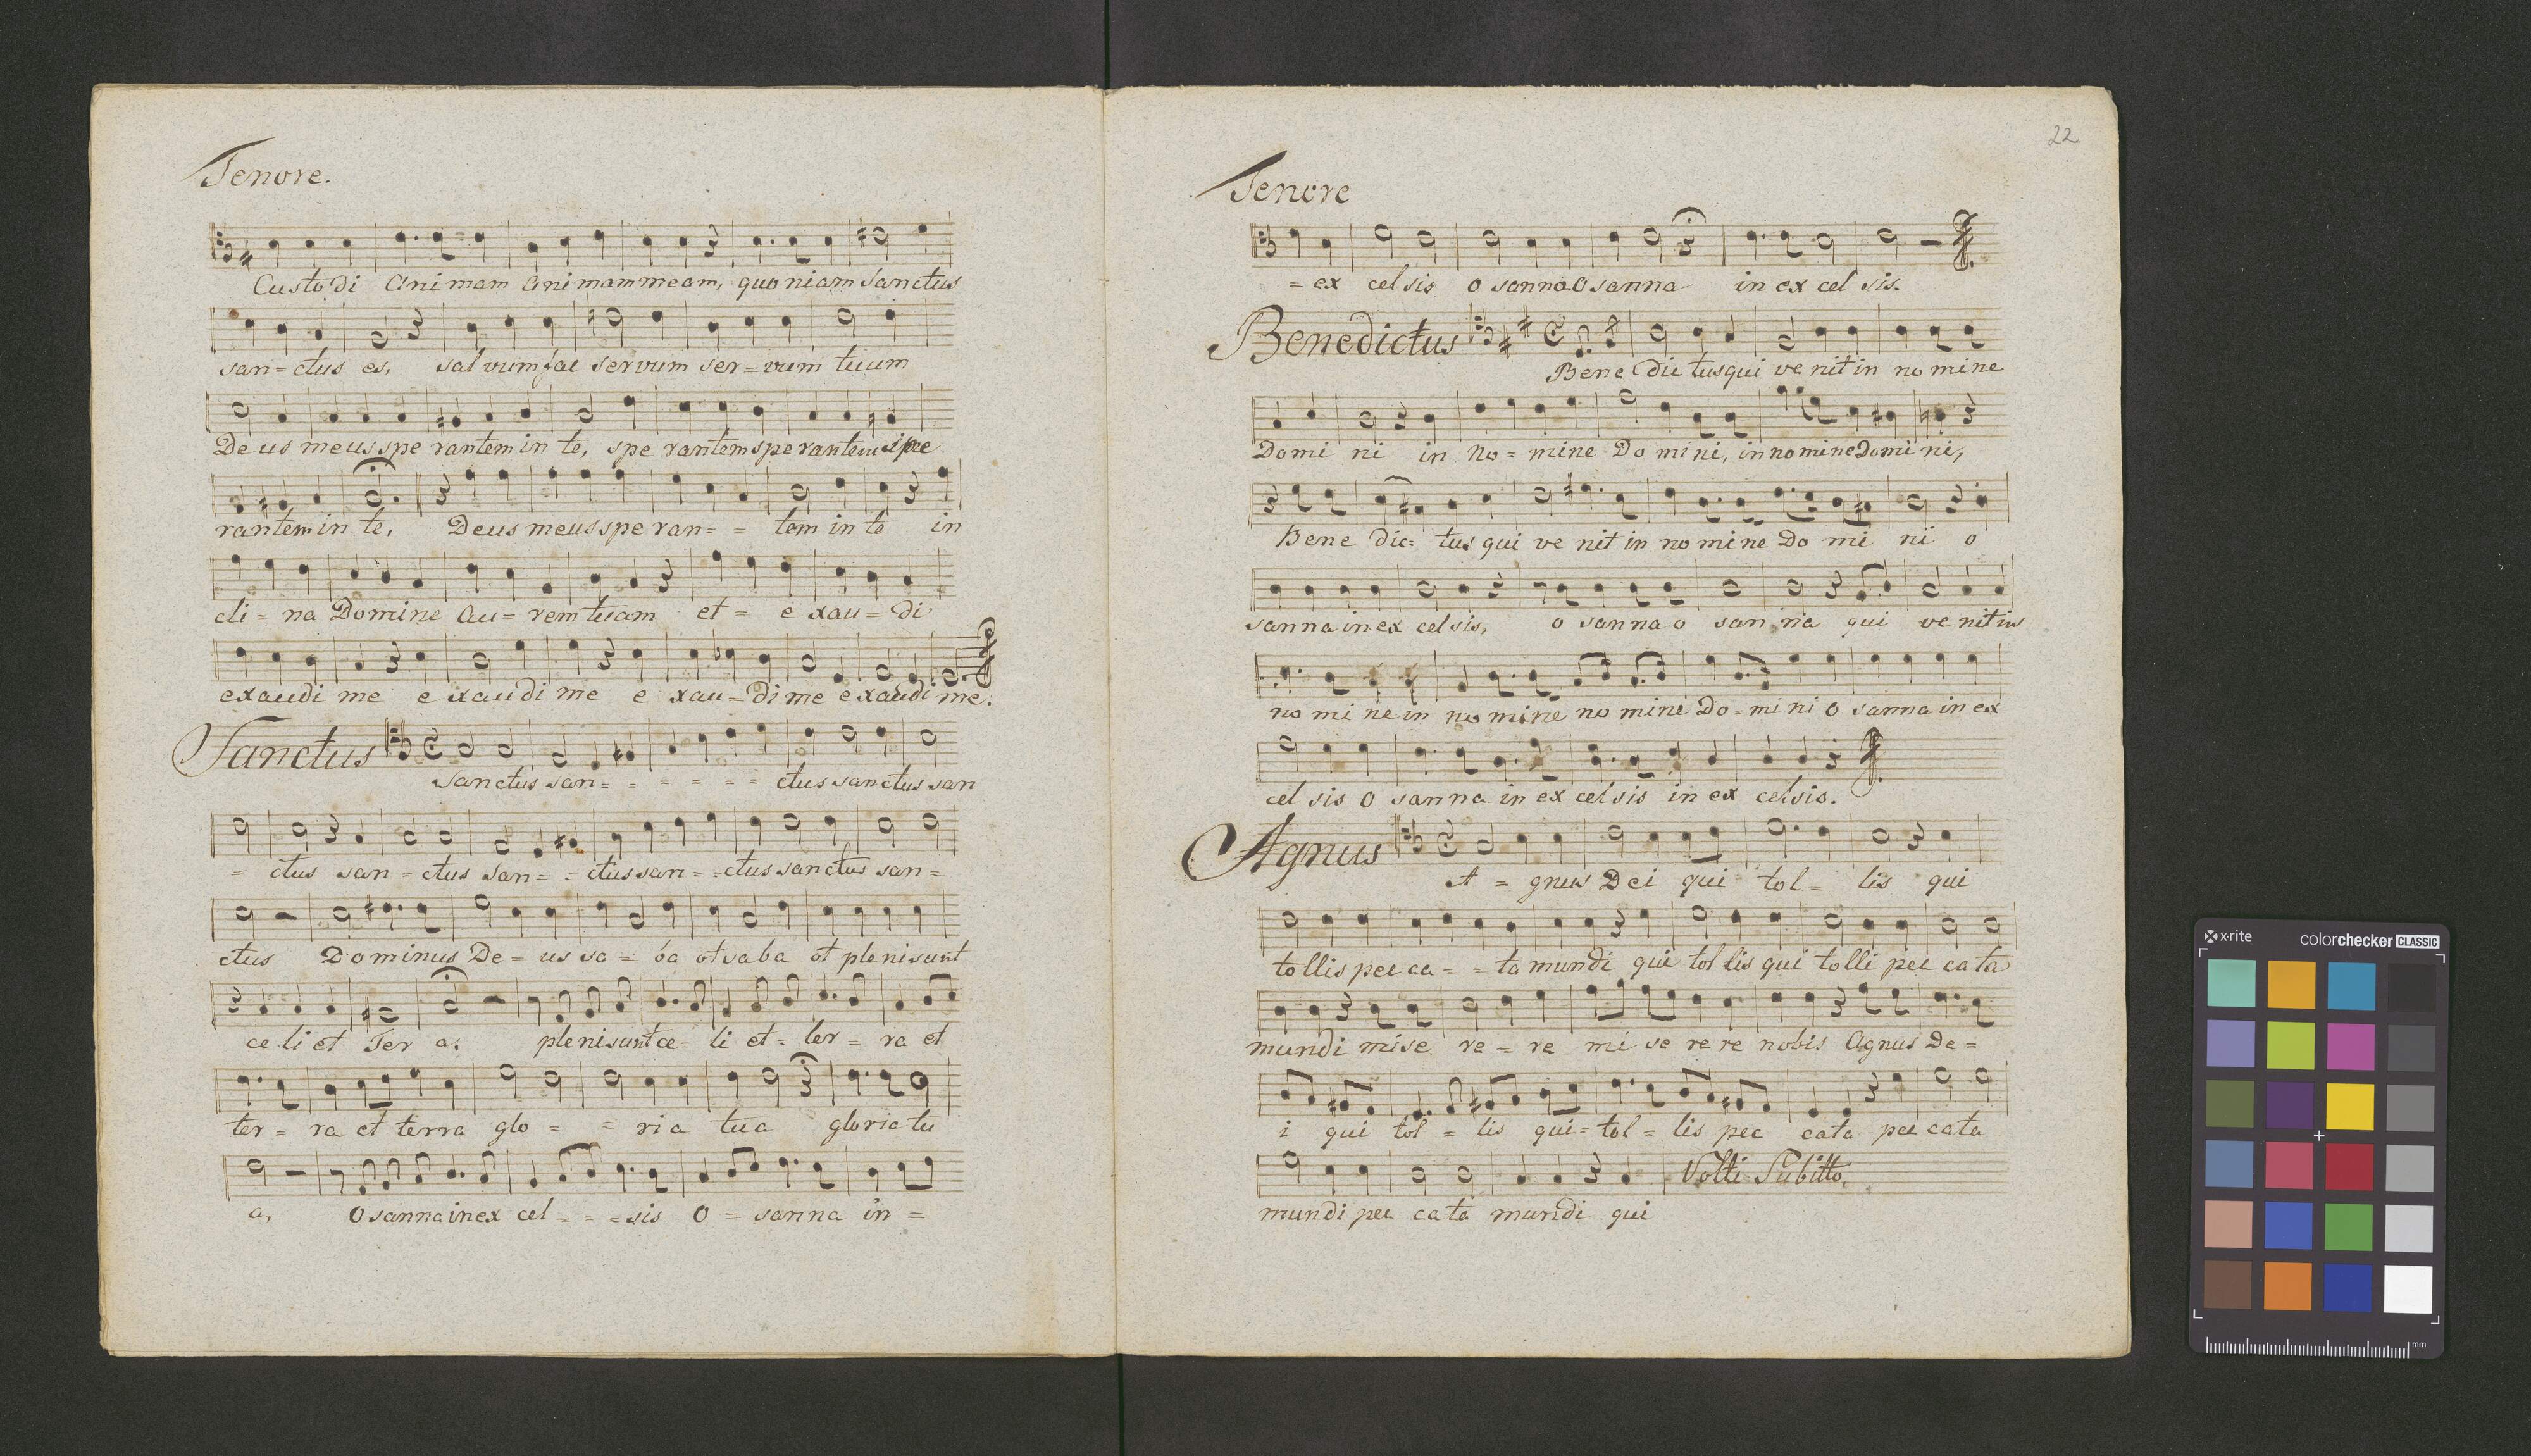 Tenore.
Custodi Animam Animam meam, quoniam Sanctus
san = ctus es, salvum fac servum ser = vum tuum
Deus meus sperantem in te, sperantem sperantem spe
rantem in te, Deus meus speran = = tem in te in
cli = na Domine Au = rem tuam et = e xau = di
exaudi me exaudi me e xau = di me exaudi me.
Sanctus
Sanctus san = = = = = = ctus sanctus san
= ctus san = ctus san = = ctus san = = ctus sanctus san =
ctus Dominus De = us sa = ba ot saba ot pleni sunt
celi et Ter a. pleni sunt ce = li et = ter = ra et
ter = ra et terra glo = = ria tua gloria tu
a, Osanna in ex cel = = = sis O = sanna in =
22
Tenore
= ex celsis osanna Osanna in excel sis.
Benedictus
Bene dic tus qui venit in nomine
Domi ni in No = mine Domini, in nomine Domini,
Bene dic = tus qui venit in nomine Do mi ni o
sanna in ex celsis, o sanna o san na qui venit in
nomine in nomine nomine Do = mini O sanna in ex
celsis O sanna in ex celsis in ex celsis.
Agnus
A = gnus Dei qui tol = lis qui
tollis pec ca = = ta mundi qui tollis qui tolli pec cata
mundi mise re = re mi se rere nobis Agnus De =
i qui tol = lis qui = tol = lis pec cata pec cata
mundi pec cata mundi qui
Volti Subitto,
x-rite
colorchecker CLASSIC
mm